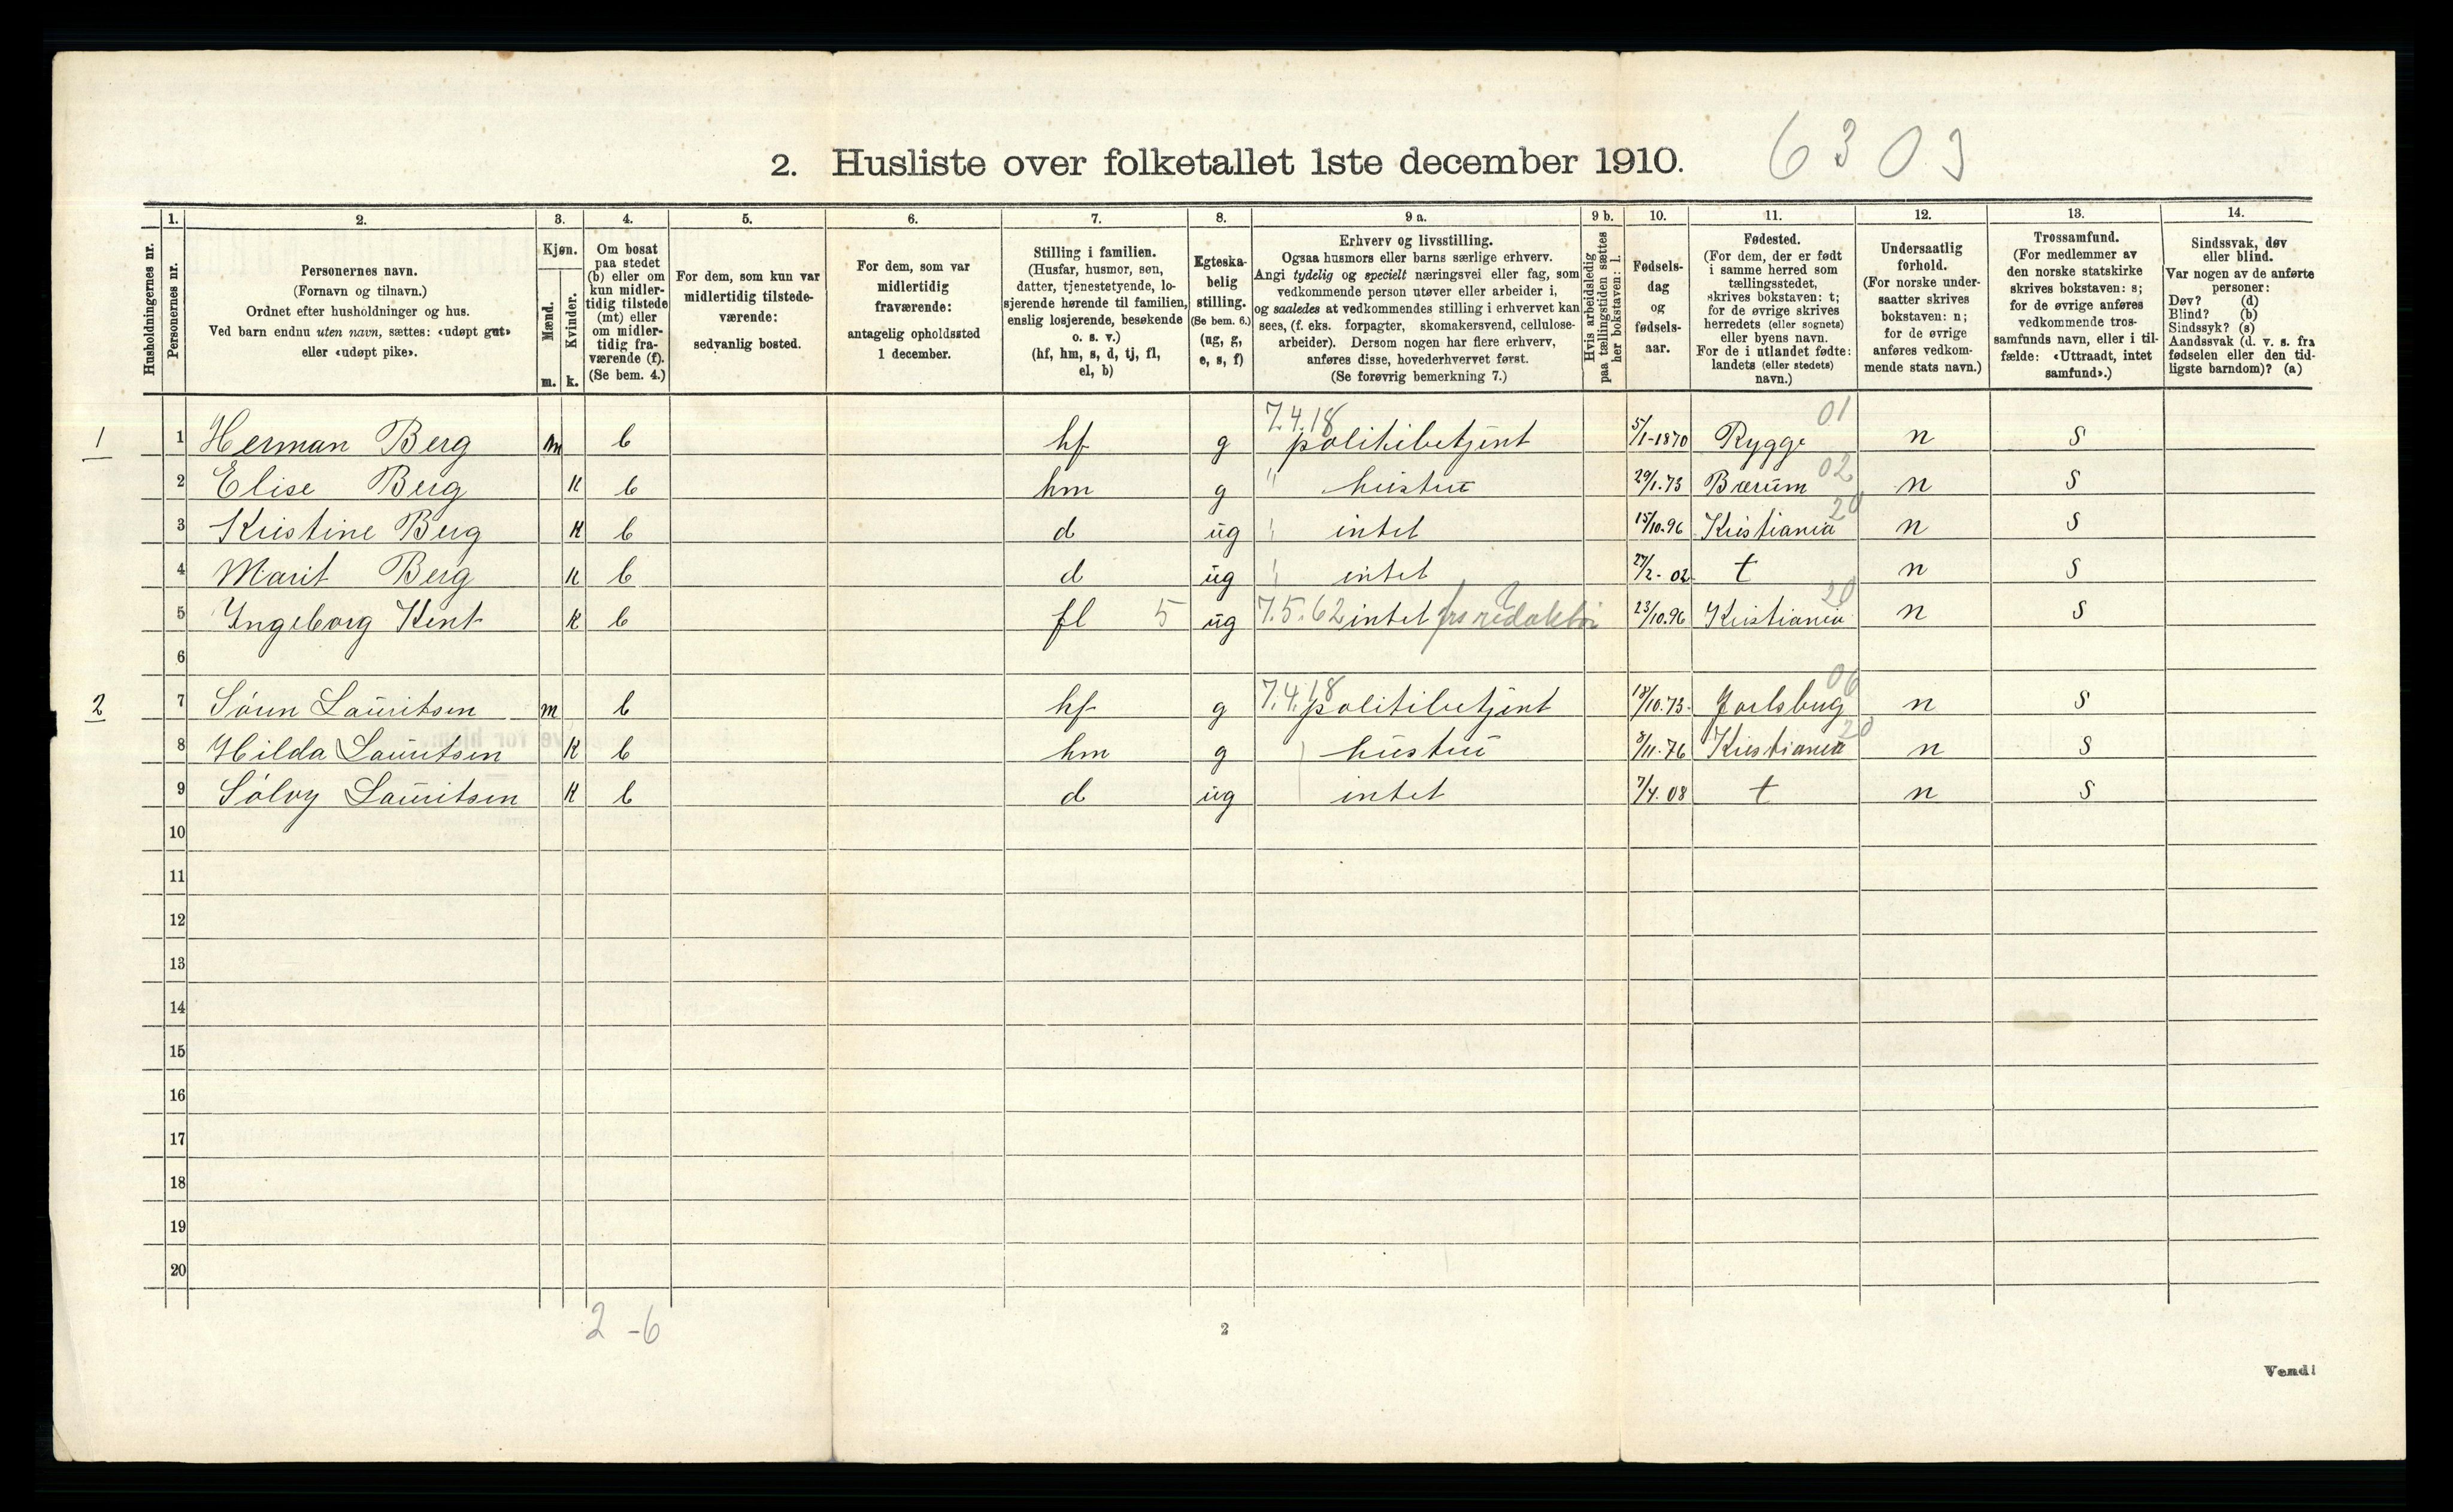 2. Husliste over folketallet 1ste december 1910. 6303
1. 2. 3. 4. 5. 6. 7. 8. 9 a. 9 b. 10. 11. 12. 13. 14.
Husholdningernes nr.
Personernes nr.
Personernes navn.
(Fornavn og tilnavn.)
Ordnet efter husholdninger og hus.
Ved barn endnu uten navn, sættes: «udøpt gut»
eller «udøpt pike».
Kjøn.
Mænd.
m.
Kvinder.
k.
Om bosat
paa stedet
(b) eller om
kun midler-
tidig tilstede
(mt) eller
om midler-
tidig fra-
værende (f).
(Se bem. 4.)
For dem, som kun var
midlertidig tilstede-
værende:
sedvanlig bosted.
For dem, som var
midlertidig
fraværende:
antagelig opholdssted
1 december.
Stilling i familien.
(Husfar, husmor, søn,
datter, tjenestetyende, lo-
sjerende hørende til familien,
enslig losjerende, besøkende
o. s. v.)
(hf, hm, s, d, tj, fl,
el, b)
Egteska-
belig
stilling.
(Se bem. 6.)
(ug, g,
e, s, f)
Erhverv og livsstilling.
Ogsaa husmors eller barns særlige erhverv.
Angi tydelig og specielt næringsvei eller fag, som
vedkommende person utøver eller arbeider i,
og saaledes at vedkommendes stilling i erhvervet kan
sees, (f. eks. forpagter, skomakersvend, cellulose-
arbeider). Dersom nogen har flere erhverv,
anføres disse, hovederhvervet først.
(Se forøvrig bemerkning 7.)
Hvis arbeidsledig
paa tællingstiden sættes
her bokstaven: l.
Fødsels-
dag
og
fødsels-
aar.
Fødested.
(For dem, der er født
i samme herred som
tællingsstedet,
skrives bokstaven: t;
for de øvrige skrives
herredets (eller sognets)
eller byens navn.
For de i utlandet fødte:
landets (eller stedets)
navn.)
Undersaatlig
forhold.
(For norske under-
saatter skrives
bokstaven: n;
for de øvrige
anføres vedkom-
mende stats navn.)
Trossamfund.
(For medlemmer av
den norske statskirke
skrives bokstaven: s;
for de øvrige anføres
vedkommende tros-
samfunds navn, eller i til-
fælde: «Uttraadt, intet
samfund».)
Sindssvak, døv
eller blind.
Var nogen av de anførte
personer:
Døv? (d)
Blind? (b)
Sindssyk? (s)
Aandssvak (d. v. s. fra
fødselen eller den tid-
ligste barndom)? (a)
1 1 Herman Berg m b hf g 7.4.18 politibetjent 5/1-1870 Rygge 01 n s
2 Elise Berg k b hm g " hustru 29/1.73 Bærum 02 n s
3 Kristine Berg k b d ug " intet 15/10.96 Kristiania 20 n s
4 Marit Berg k b d ug " intet 27/2-02 t n s
5 Ingeborg Kent k b fl 5 ug 7.5.62 intet frs redaktør 23/10.96 Kristiania 20 n s
6
2 7 Søren Lauritsen m b hf g 7.4.18 politibetjent 18/10.73 Jarlsberg 06 n s
8 Hilda Lauritsen k b hm g hustru 8/11-76 Kristiania 20 n s
9 Sølvy Lauritsen k b d ug intet 7/4.08 t n s
10
11
12
13
14
15
16
17
18
19
20
2-6
2
Vend!